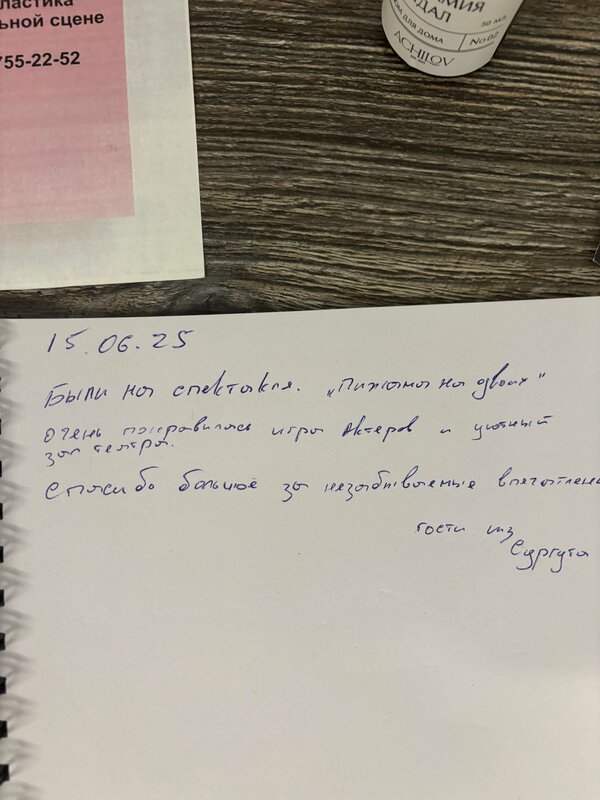 ластика
ьной сцене
755-22-52
МИЯ
ДАЛ
50 мл
ОМ ДЛЯ ДОМА
No 02
ACHILOV
15.06.25
Были на спектакля. „Пижама на двоих"
Очень понравилась игра Актеров и уютный
зал театра.
Спасибо большое за незабываемые впечатлени
гости из
Сургута